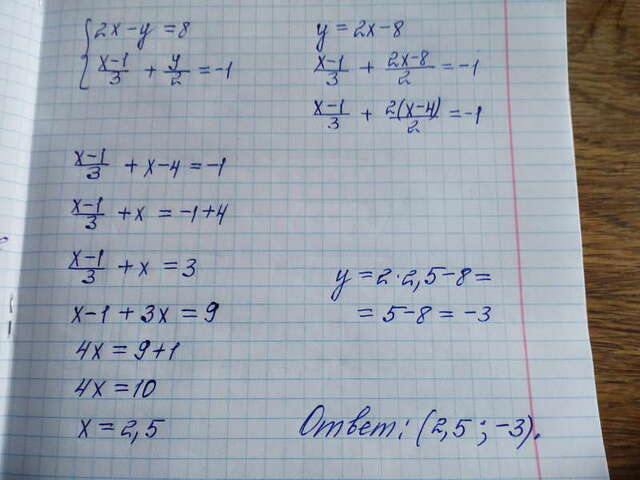 {2x-y=8
(x-1)/3 + y/2 = -1
y=2x-8
(x-1)/3 + (2x-8)/2 = -1
(x-1)/3 + 2(x-4)/2 = -1
(x-1)/3 + x-4 = -1
(x-1)/3 + x = -1+4
(x-1)/3 + x = 3
x-1+3x=9
4x=9+1
4x=10
x=2,5
y=2·2,5-8=
=5-8=-3
Ответ: (2,5;-3).